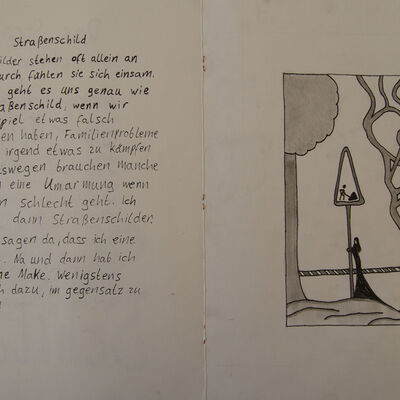 Straßenschild
ilder stehen oft allein an
urch fühlen sie sich einsam.
geht es uns genau wie
aßenschild, wenn wir
spiel etwas falsch
en haben, Familienprobleme
irgend etwas zu kämpfen
swegen brauchen manche
n eine Umarmung wenn
n schlecht geht. Ich
dann Straßenschilder.
sagen da, dass ich eine
. Na und dann hab ich
ne Make. Wenigstens
h dazu, im gegensatz zu